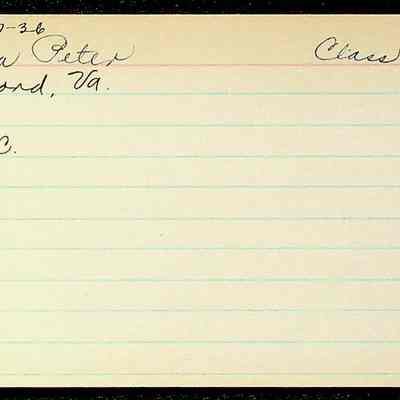 7-36
a Peter Class
ond, Va.
C.